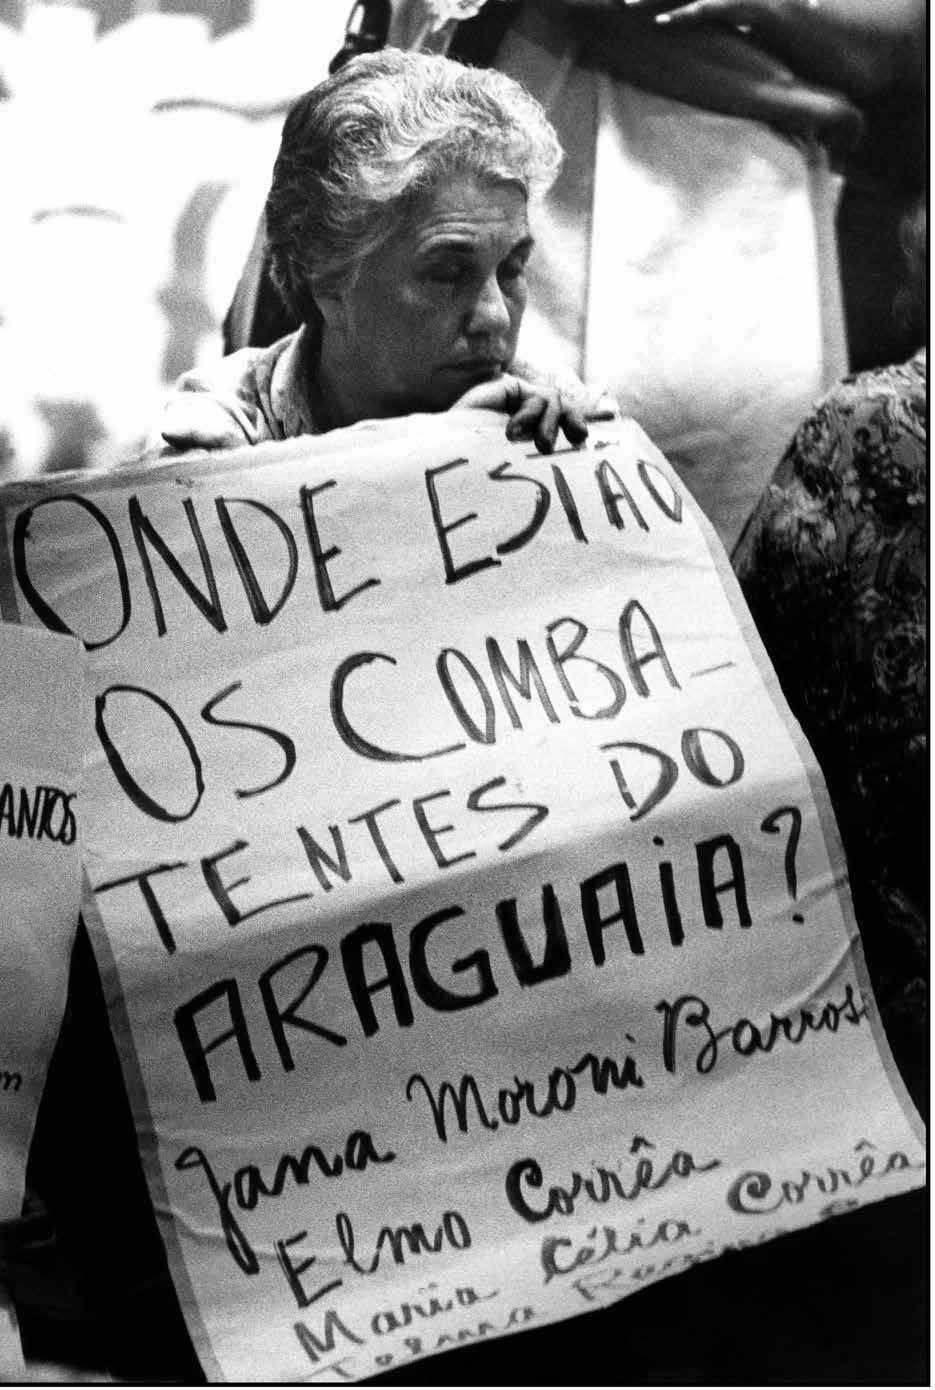 ONDE ESTÃO
OS COMBA-
TENTES DO
ARAGUAiA?
Jana Moroni Barroso
Elmo Corrêa
Maria Célia Corrêa
ANTOS
m